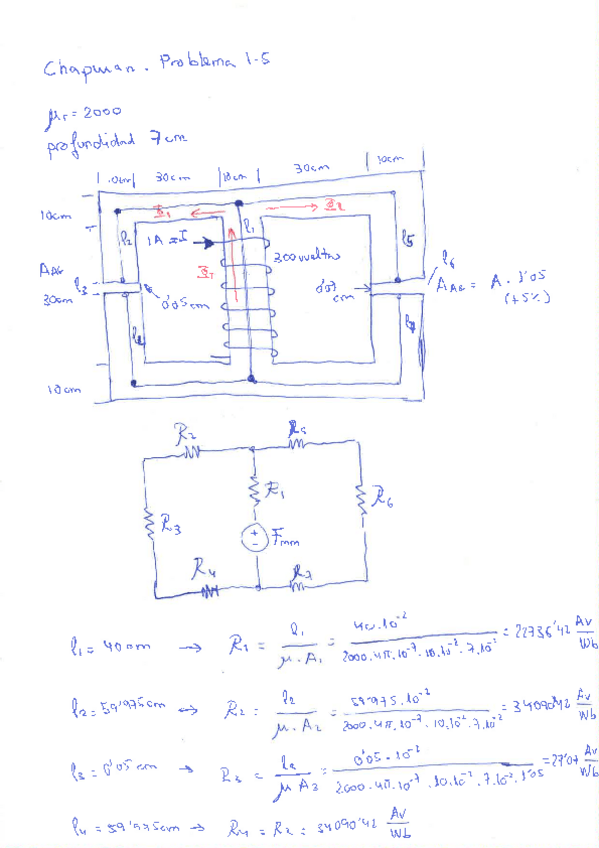 Chapman. Problema 1-5
μr = 2000
profundidad 7cm
10cm 30cm 10cm 30cm 10cm
10cm
Φ1 Φ2
l2 1A = I l1 l5
300 vueltas
ΦT
A AG
l3
30cm
0'05cm
0'07 cm
l6
A AG = A · 1'05
(+5%)
l4 l7
10cm
R2 R5
R1
R3 R6
+ - Fmm
R4 R7
l1 = 40cm → R1 = l1 / μ·A1 = 40·10⁻² / 2000·4π·10⁻⁷·10·10⁻²·7·10⁻² = 22736'42 Av/Wb
l2 = 59'975cm → R2 = l2 / μ·A2 = 59'975·10⁻² / 2000·4π·10⁻⁷·10·10⁻²·7·10⁻² = 34090'42 Av/Wb
l3 = 0'05cm → R3 = l3 / μ A3 = 0'05·10⁻² / 2000·4π·10⁻⁷·10·10⁻²·7·10⁻²·1'05 = 27'07 Av/Wb
l4 = 59'975cm → R4 = R2 = 34090'42 Av/Wb